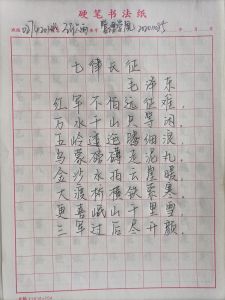 硬笔书法纸
七律长征
毛泽东
红军不怕远征难，
万水千山只等闲
五岭逶迤腾细浪
乌蒙磅礴走泥丸，
金沙水拍云崖暖
大渡桥横铁索寒，
更喜岷山千里雪，
三军过后尽开颜，